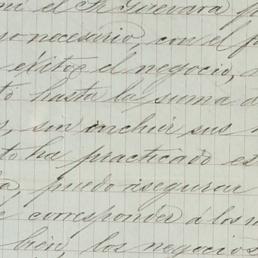 mi el Sr Guevara
necesario, con el
éxito el negocio,
to hasta la suma
sin incluir sus
to ha practicado
puedo asegurar
corresponder á los
bien, los negocios